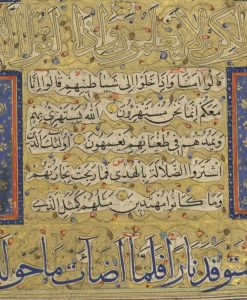 لكن لا يعلمون واذا لقوا
قالوا امنا واذا خلوا الى شياطينهم قالوا انا
معكم انما نحن مستهزؤن الله يستهزئ بهم
ويمدهم في طغيانهم يعمهون اولئك الذين
اشتروا الضلالة بالهدى فما ربحت تجارتهم
وما كانوا مهتدين مثلهم كمثل الذي
ستوقد نارا فلما اضاءت ما حوله